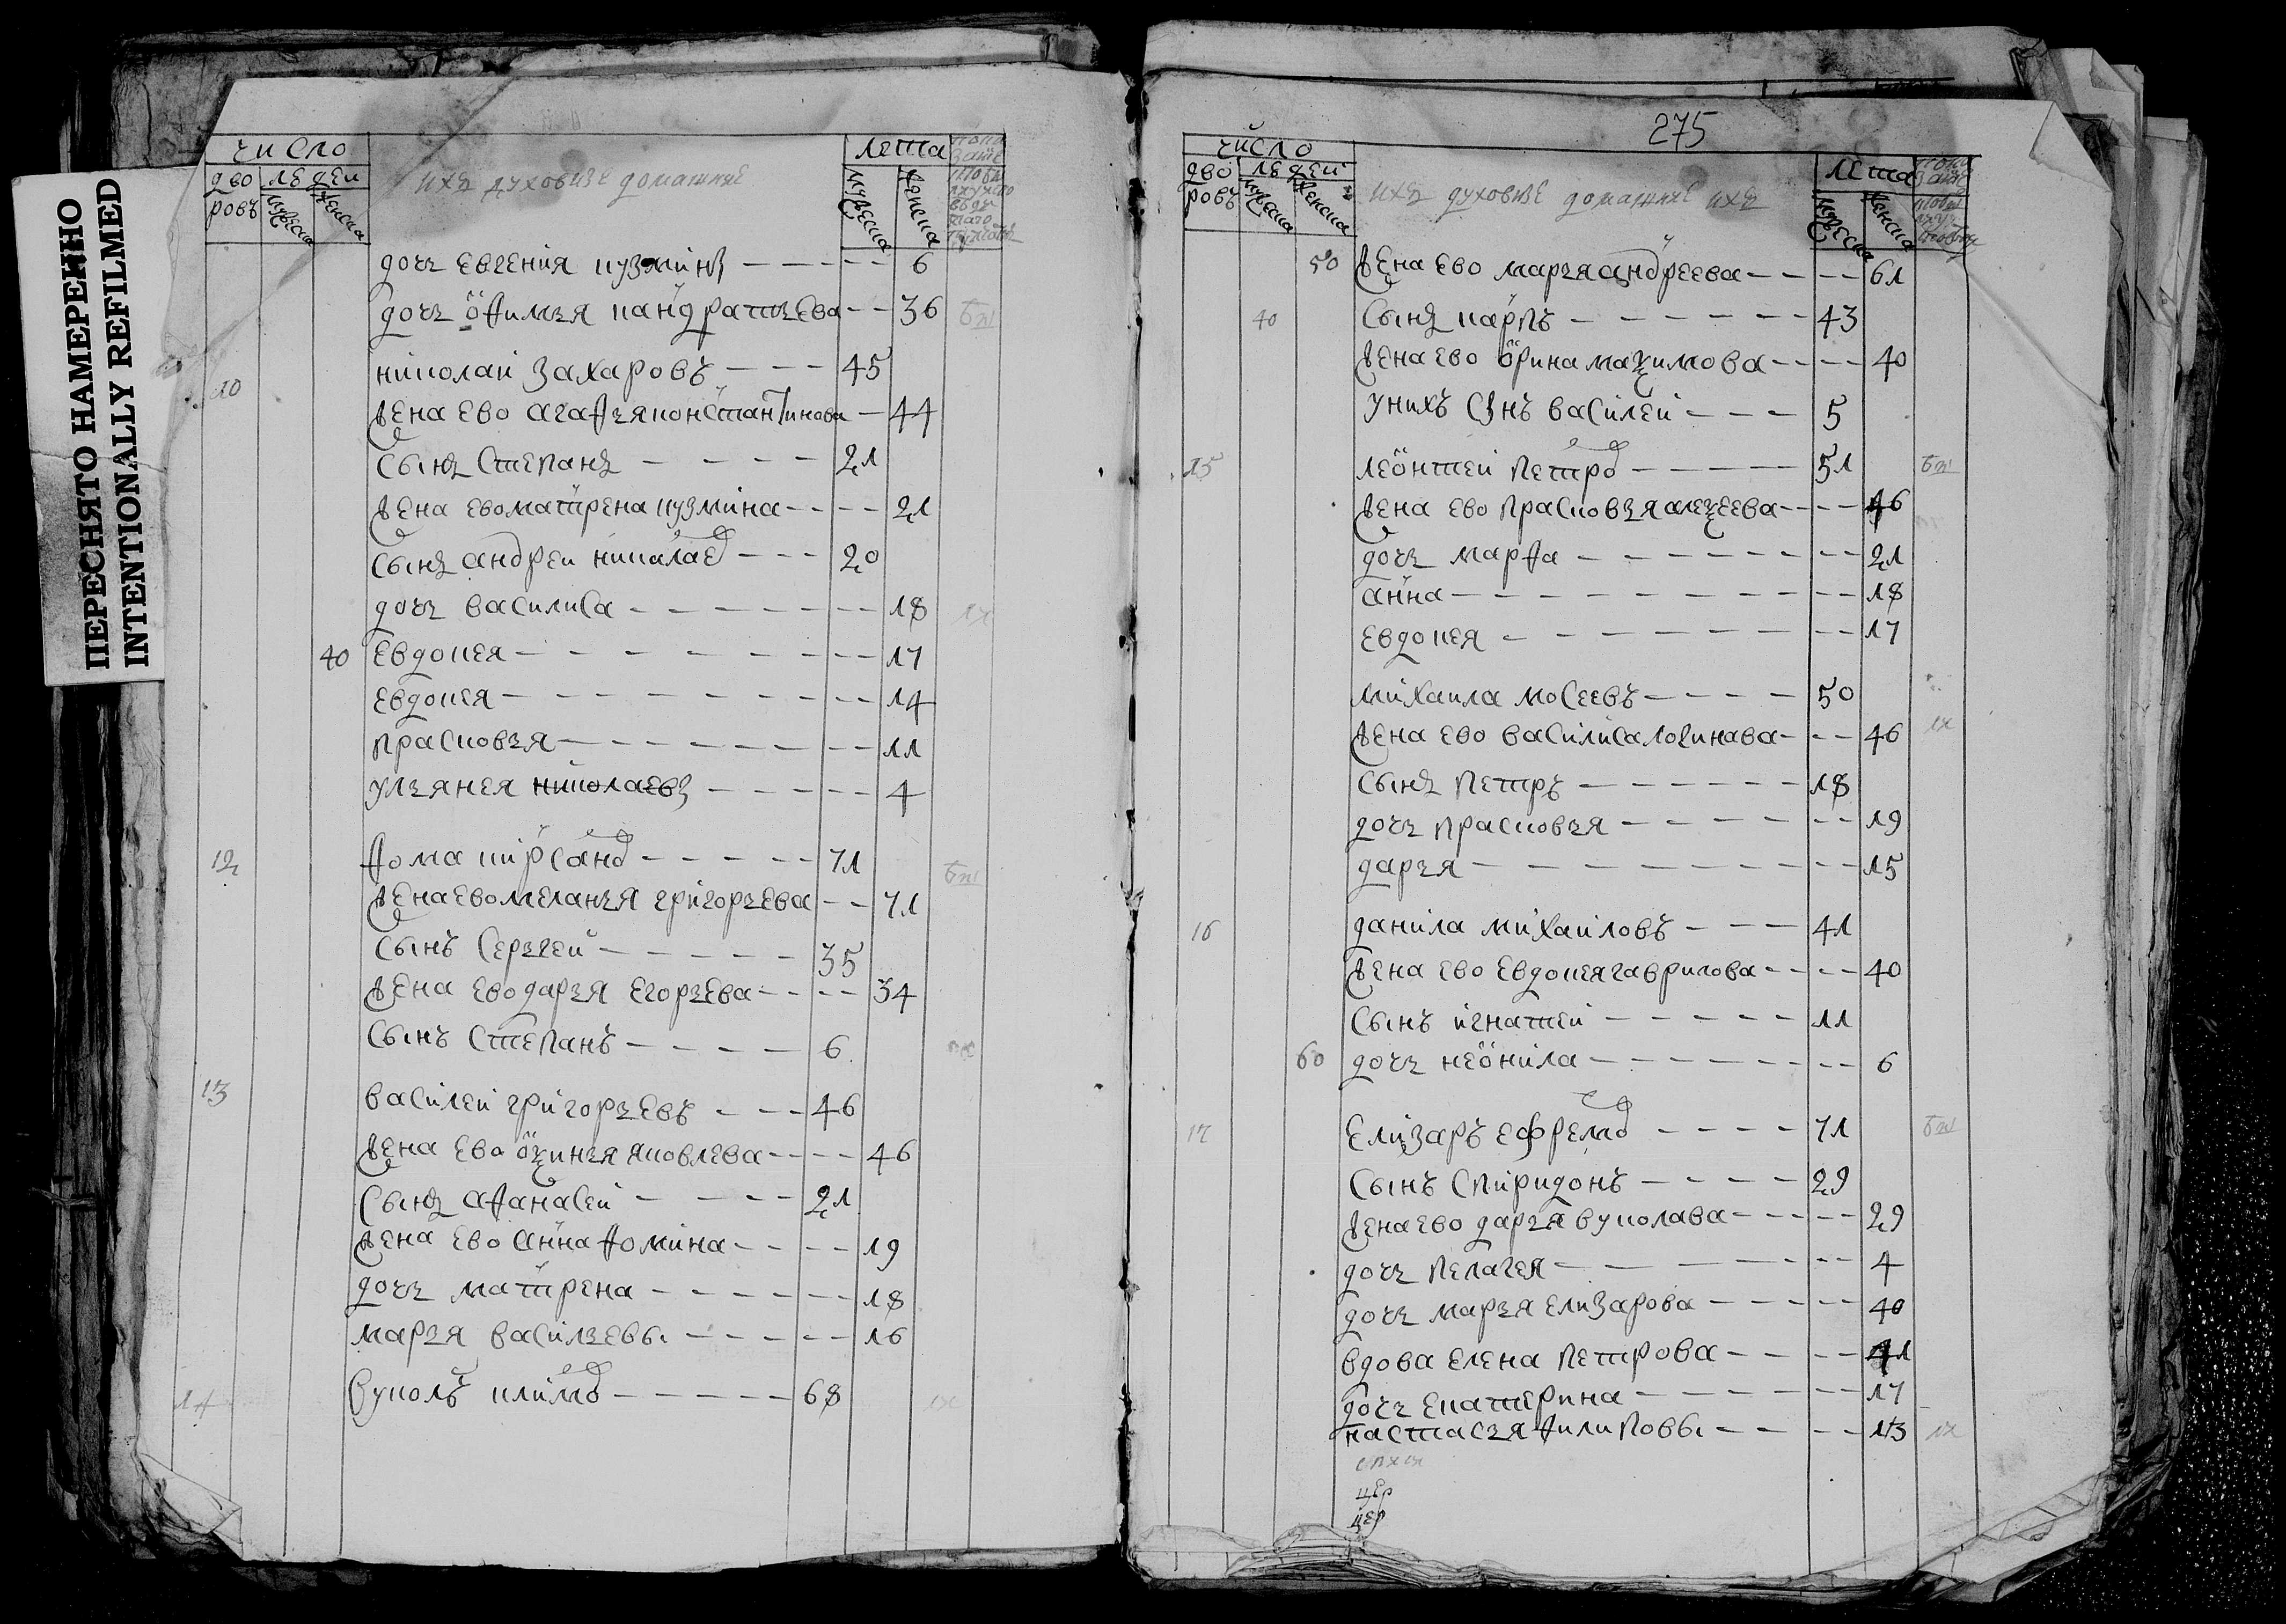 ПЕРЕСНЯТО НАМЕРЕННО
INTENTIONALLY REFILMED
число
лета
дворовъ
людеи
мужеска
женска
мужеска
женска
ихъ духовные домашные
дочь евгения кузминъ 6
дочь офимья кандратьева 36
10 николаи захаровъ 45
жена ево агафья константинова 44
сынъ степанъ 21
жена ево матрена кузмина 21
сынъ андреи николаев 20
дочь василиса 18
40 евдокея 17
евдокея 14
прасковья 11
ульянея николаевы 4
12 фома кирсанов 71
жена ево меланья григорьева 71
сынъ сергеи 35
жена ево дарья егорьева 34
сынъ степанъ 6
13 василеи григорьевъ 46
жена ево оксинья яковлева 46
сынъ афанасеи 21
жена ево анна фомина 19
дочь матрена 18
марья васильевы 16
14 вуколъ климов 68
275
число
лета
дворовъ
людеи
мужеска
женска
мужеска
женска
ихъ духовные домашные ихъ
50 жена ево марья андреева 61
40 сынъ карпъ 43
жена ево орина максимова 40
у нихъ сынъ василеи 5
15 леонтеи петров 51
жена ево прасковья алексеева 46
дочь марфа 21
анна 18
евдокея 17
михаила мосеевъ 50
жена ево василиса логинава 46
сынъ петръ 18
дочь прасковья 19
дарья 15
16 данила михаиловъ 41
жена ево евдокея гаврилова 40
сынъ игнатеи 11
60 дочь неонила 6
17 елизаръ ефремов 71
сынъ спиридонъ 29
жена ево дарья вуколава 29
дочь пелагея 4
дочь марья елизарова 40
вдова елена петрова 41
дочь екатерина 17
настасья филиповы 13
цер
цер